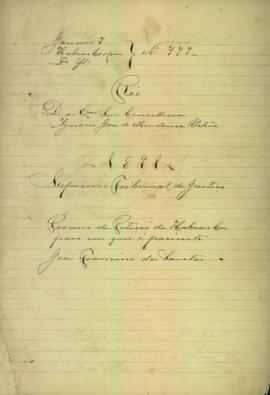 Janeiro 7
Habeas Corpus } Nº 477
Rio
D. ao Exmo Snr Conselheiro
Ignacio José de Mendonça Uchôa
1891
Supremo Tribunal de Justiça
Processo de Petição de Habeas Cor
pus em que é paciente
João Francisco dos Santos